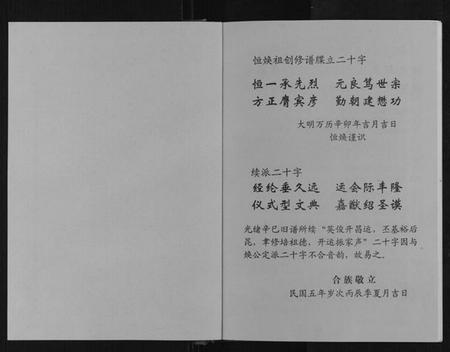 恒焕祖创修谱牒立二十字
恒一承先烈 元良笃世宗
方正膺宾彦 勤朝建懋功
大明万历辛卯年吉月吉日
恒焕谨识
续派二十字
经纶垂久远 运会际丰隆
仪式型文典 嘉猷绍圣谟
光绪辛巳旧谱所续“英俊开昌运,丕基裕后
昆,聿修培祖德,开运振家声”二十字因与
焕公定派二十字不合音韵,故易之。
合族敬立
民国五年岁次丙辰季夏月吉日